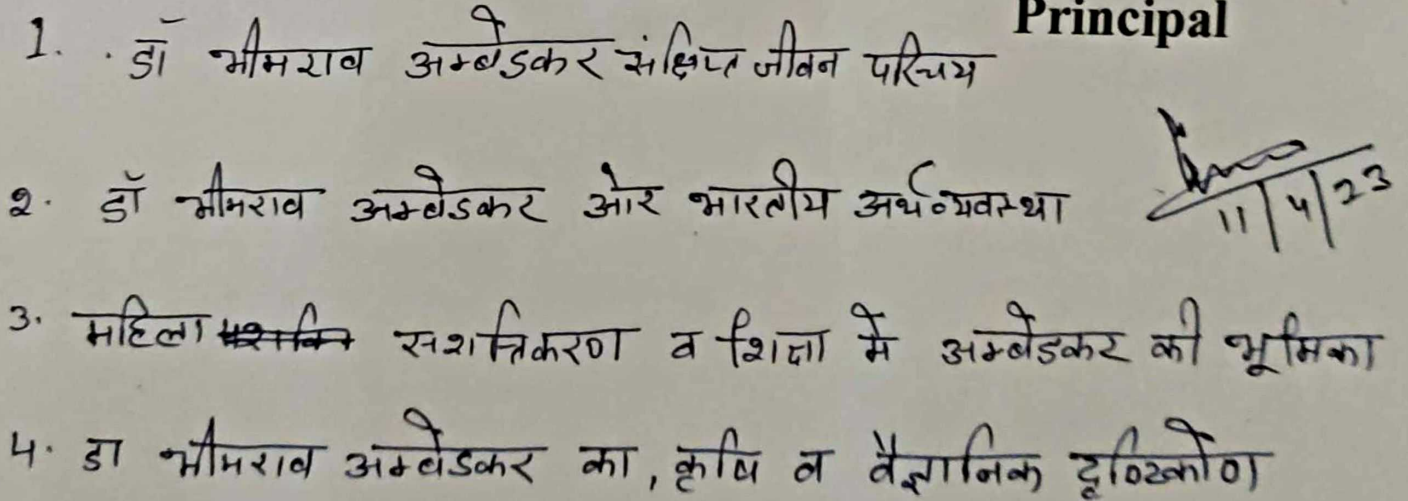 Principal
1. डॉ भीमराव अम्बेडकर संक्षिप्त जीवन परिचय
2. डॉ भीमराव अम्बेडकर ओर भारतीय अर्थव्यवस्था
11/4/23
3. महिला सशक्तिकरण व शिक्षा मे अम्बेडकर की भूमिका
4. डा भीमराव अम्बेडकर का, कृषि व वैज्ञानिक दृष्टिकोण